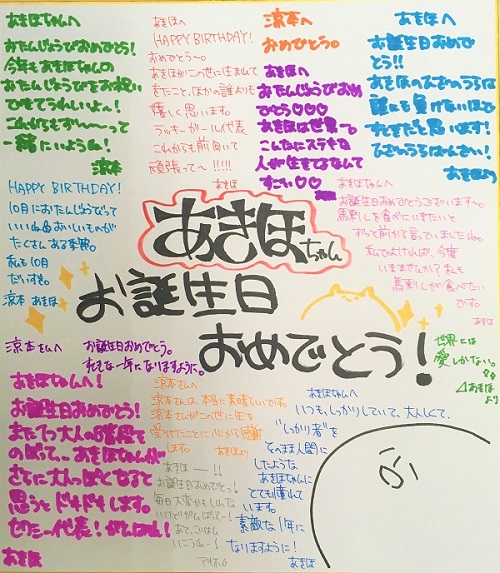 あきほちゃんへ
おたんじょうびおめでとう!
今年もあきほちゃんの
おたんじょうびをお祝い
できてうれしいよ〜!
これからもず〜〜〜って
一緒にいようね!
涼本
あきほへ
HAPPY BIRTHDAY!
おめでとう〜。
あきほがこの世に生まれて
きたこと、ほかの誰よりも
嬉しく思います。
ラッキーガール代表
これからも前向いて
頑張って〜!!!!!
あきほ
涼本へ
おめでとう。
あきほへ
おたんじょうびおめ
でとう♡♡♡
あきほは世界一。
こんなにステキな
人が生きてるなんて
すごい♡♡
あきほへ
お誕生日おめで
とう!!
あきほのひざのうらは
誰にも負けないほど
すてきだと思います!
ひざのうらばんざい!
あきほより
HAPPY BIRTHDAY!
10月におたんじょうびって
いいね。おいしいものが
たくさんある季節。
私も10月
だいすき。
涼本 あきほ
あきほちゃんへ
お誕生日おめでとうございます〜
馬刺しを食べにいきたいと
ずっと前から言っていましたね。
私でよければ、今度
いきませんか?私も
馬刺しが食べたい
です。
あきほ
あきほちゃん
お誕生日
おめでとう!
世界には
愛しかない。
あきほ
より
涼本さんへ
お誕生日おめでとう。
すてきな一年になりますように。
あきほちゃんへ!
お誕生日おめでとう!
また1つ大人の階段を
のぼって、あきほちゃんが
さらに大人っぽくなると
思うとドキドキします。
セクシー代表!がんばれ!
あきほ
涼本さんへ
涼本さんは、本当に素晴らしいです。
涼本さんがこの世に生を
受けたことに、心から感謝
します。
あきほより
あきほ——!!
お誕生日おめでとっ!
毎日大変かもしれな
いけどがんばって〜!
あと、ごはん
いこうね〜!
あきほちゃんへ
いつも、しっかりしていて、大人しくて、
"しっかり者"を
そのまま人間に
したような
あきほちゃんに
とても憧れて
います。
素敵な1年に
なりますように!
あきほ